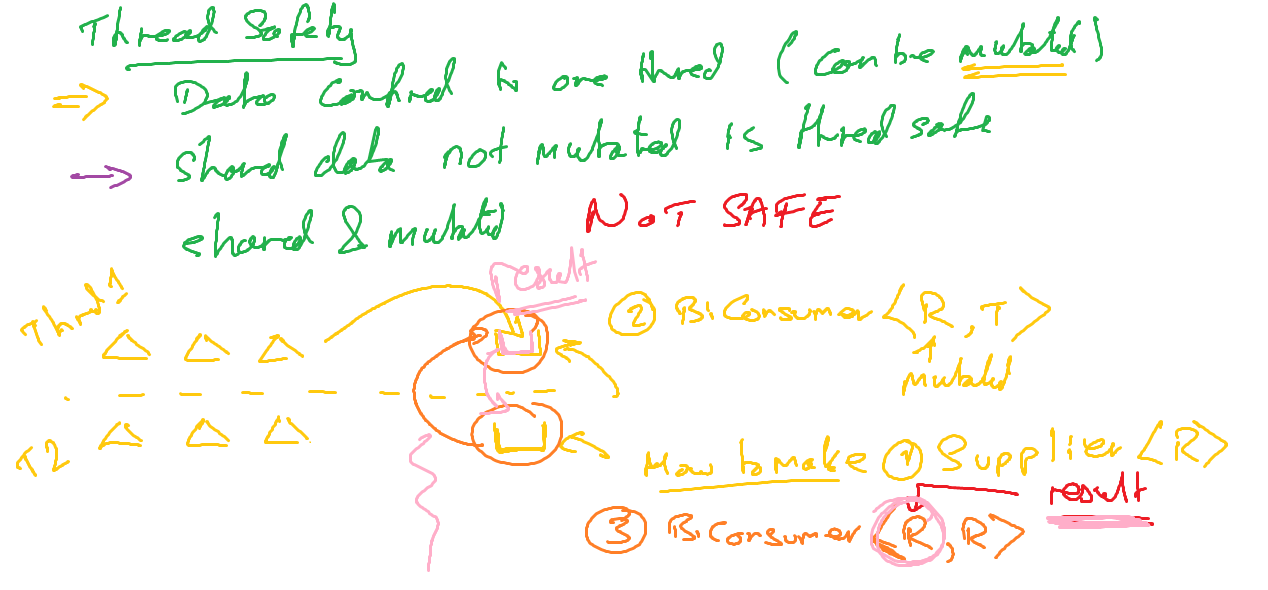 Thread Safety
Data confined to one thred (can be mutated)
shared data not mutated is thred safe
shared & mutated NOT SAFE
result
Thred 1
② BiConsumer <R, T>
mutated
T2
How to make ① Supplier <R>
result
③ BiConsumer <R, R>